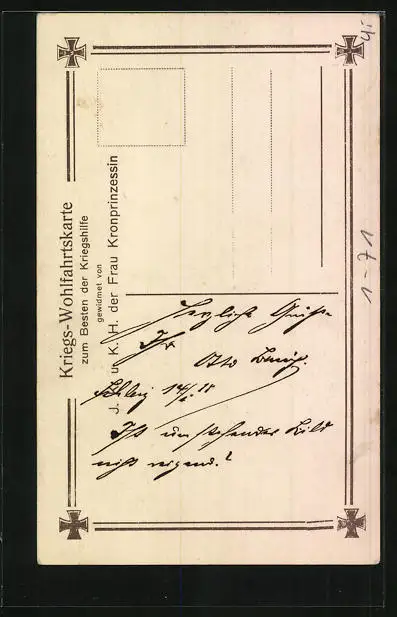 Kriegs-Wohlfahrtskarte
zum Besten der Kriegshilfe
gewidmet von
J. K. u. K. H. der Frau Kronprinzessin
Herzlich Grüße
Ihr
Otto
14/ 18
Ist umstehendes Bild
nicht reizend?